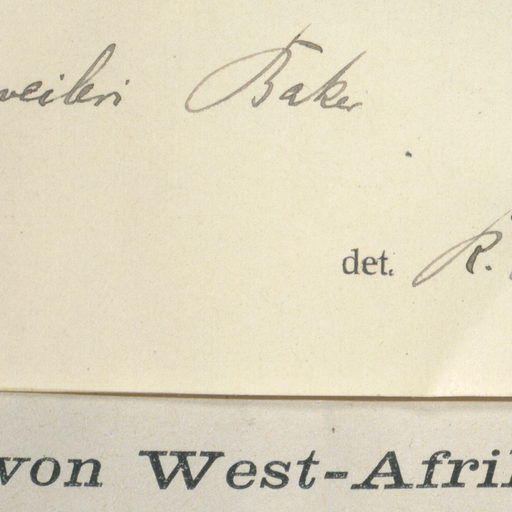 weileri Baker
det. R.
von West-Afri